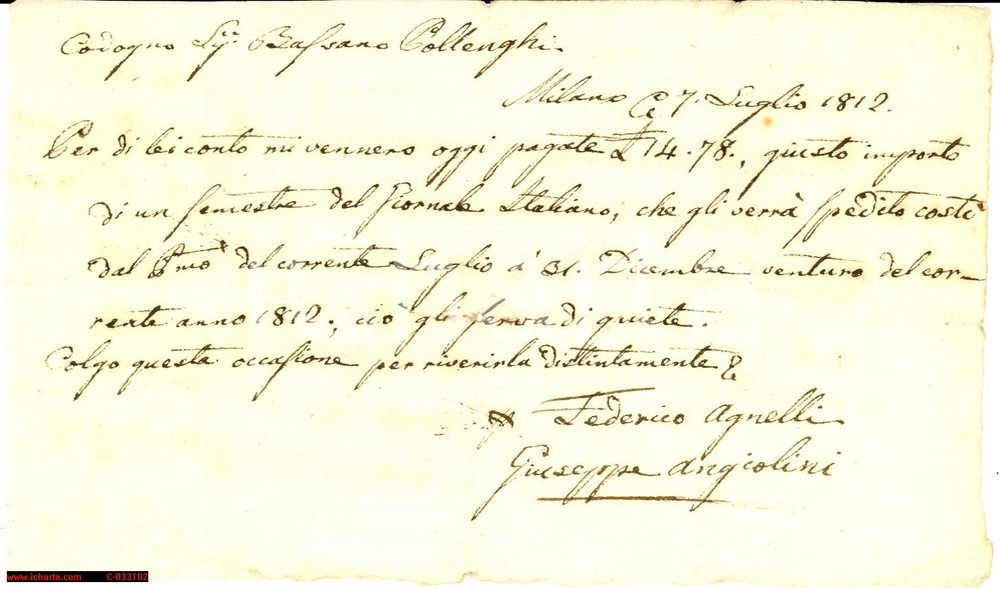 Codogno Sig.r Bassano Pollenghi
Milano 7. Luglio 1812.
Per di lei conto mi vennero oggi pagate £ 14.78., giusto importo
di un semestre del Giornale Italiano, che gli verrà spedito costì
dal Pmo del corrente Luglio a' 31. Dicembre venturo del cor-
rente anno 1812., ciò gli serva di quiete.
Colgo questa occasione per riverirla distintamente
Federico Agnelli
Giuseppe Angiolini
www.icharta.com C-033102